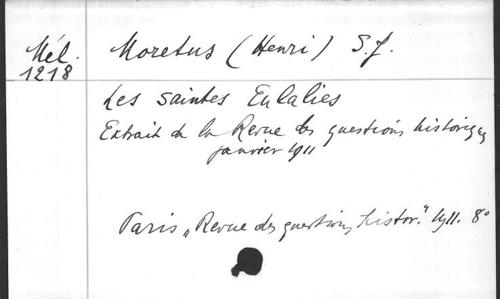 Mél. Moretus (Henri) S.J.
1218
Les Saintes Eulalies
Extrait de la Revue des questions historiques
janvier 1911
Paris „Revue des questions histor." 1911. 8°